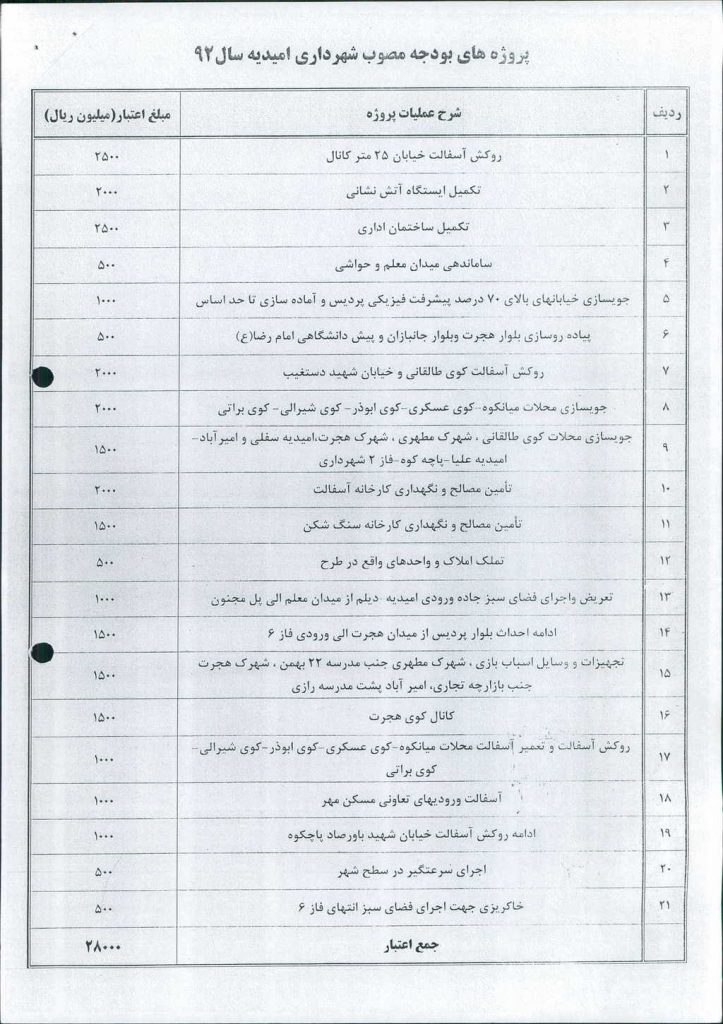 پروژه های بودجه مصوب شهرداری امیدیه سال ۹۲
ردیف شرح عملیات پروژه مبلغ اعتبار(میلیون ریال)
۱ روکش آسفالت خیابان ۲۵ متر کانال ۲۵۰۰
۲ تکمیل ایستگاه آتش نشانی ۲۰۰۰
۳ تکمیل ساختمان اداری ۲۵۰۰
۴ ساماندهی میدان معلم و حواشی ۵۰۰
۵ جویسازی خیابانهای بالای ۷۰ درصد پیشرفت فیزیکی پردیس و آماده سازی تا حد اساس ۱۰۰۰
۶ پیاده روسازی بلوار هجرت وبلوار جانبازان و پیش دانشگاهی امام رضا(ع) ۵۰۰
۷ روکش آسفالت کوی طالقانی و خیابان شهید دستغیب ۲۰۰۰
۸ جویسازی محلات میانکوه-کوی عسکری-کوی ابوذر- کوی شیرالی- کوی براتی ۲۰۰۰
۹ جویسازی محلات کوی طالقانی ، شهرک مطهری ، شهرک هجرت،امیدیه سفلی و امیر آباد- ۱۵۰۰
امیدیه علیا-پاچه کوه-فاز ۲ شهرداری
۱۰ تأمین مصالح و نگهداری کارخانه آسفالت ۲۰۰۰
۱۱ تأمین مصالح و نگهداری کارخانه سنگ شکن ۱۵۰۰
۱۲ تملک املاک و واحدهای واقع در طرح ۵۰۰
۱۳ تعریض واجرای فضای سبز جاده ورودی امیدیه -دیلم از میدان معلم الی پل مجنون ۱۰۰۰
۱۴ ادامه احداث بلوار پردیس از میدان هجرت الی ورودی فاز ۶ ۱۵۰۰
۱۵ تجهیزات و وسایل اسباب بازی ، شهرک مطهری جنب مدرسه ۲۲ بهمن ، شهرک هجرت ۱۵۰۰
جنب بازارچه تجاری، امیر آباد پشت مدرسه رازی
۱۶ کانال کوی هجرت ۱۵۰۰
۱۷ روکش آسفالت و تعمیر آسفالت محلات میانکوه-کوی عسکری-کوی ابوذر-کوی شیرالی- ۱۰۰۰
کوی براتی
۱۸ آسفالت ورودیهای تعاونی مسکن مهر ۱۰۰۰
۱۹ ادامه روکش آسفالت خیابان شهید باورصاد پاچکوه ۱۰۰۰
۲۰ اجرای سرعتگیر در سطح شهر ۵۰۰
۲۱ خاکریزی جهت اجرای فضای سبز انتهای فاز ۶ ۵۰۰
جمع اعتبار ۲۸۰۰۰